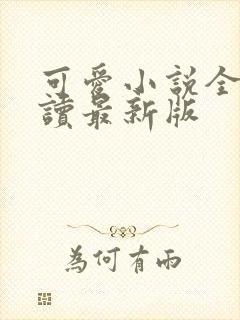 可愛小說全
讀最新版
為何有雨